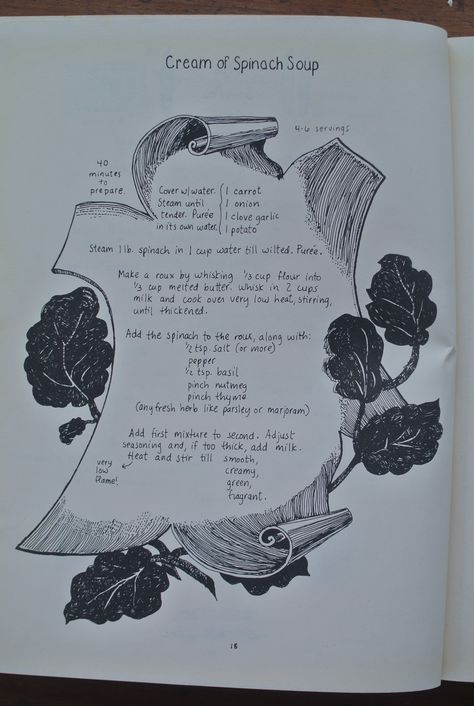 Cream of Spinach Soup
4-6 servings
40
minutes
to
prepare.
Cover w/water. 1 carrot
Steam until 1 onion
tender. Purée 1 clove garlic
in its own water. 1 potato
Steam 1 lb. spinach in 1 cup water till wilted. Purée.
Make a roux by whisking 1/3 cup flour into
1/3 cup melted butter. Whisk in 2 cups
milk and cook over very low heat, stirring,
until thickened.
Add the spinach to the roux, along with:
1/2 tsp. salt (or more)
pepper
1/2 tsp. basil
pinch nutmeg
pinch thyme
(any fresh herb like parsley or marjoram)
Add first mixture to second. Adjust
seasoning and, if too thick, add milk.
Heat and stir till smooth,
creamy,
green,
fragrant.
very
low
flame!
18